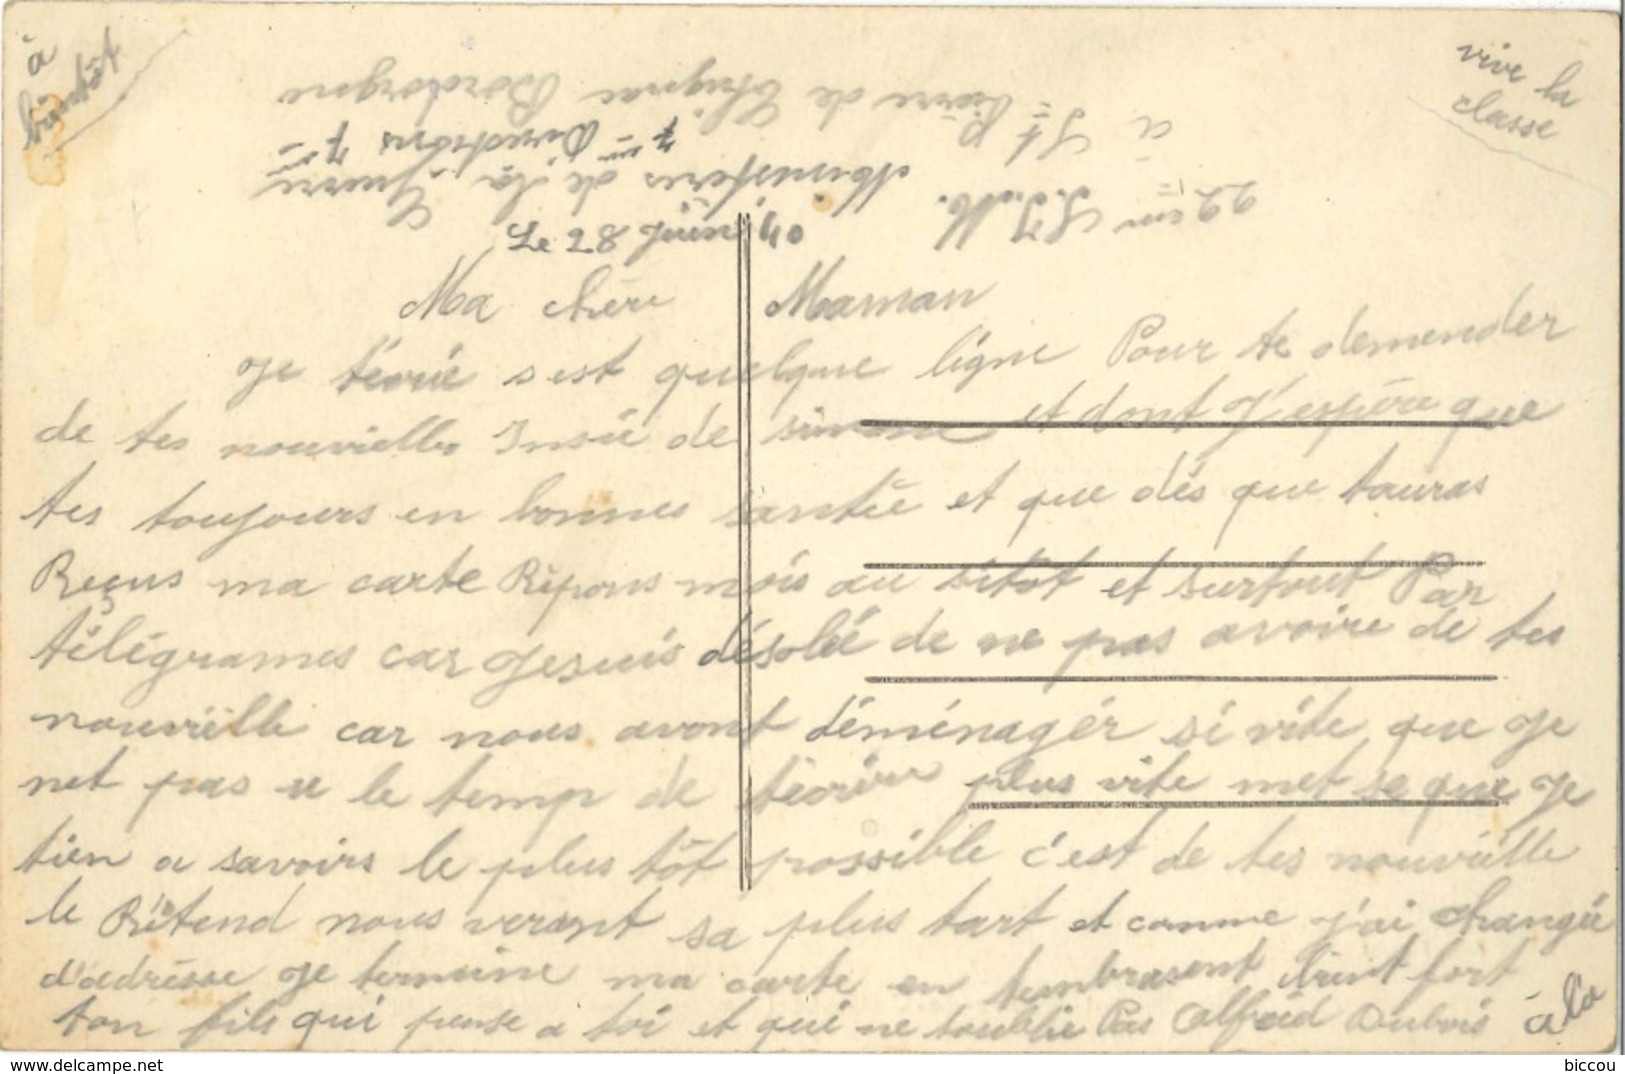 à
bientôt
vive la
classe
22em S.I.M.
à St Pierre de Chignac Bordorgne
Ministères de la Guerre
7em Directions
Le 28 Juin 40
Ma chère Maman
Je técrie s est quelque ligne Pour te demender
de tes nouvielles Insie de simone et dont J'espère que
tes toujours en bonnes santée et que dés que tauras
Reçus ma carte Répons mois au sitôt et surtout Par
télégrames car Jesuis désolée de ne pas avoire de tes
nouvielle car nous avont déménagér si vite que Je
net pas u le temp de técrire plus vite met se que Je
tien a savoirs le plus tôt possible c'est de tes nouvielle
le Rétend nous veront sa plus tart et comme J'ai changée
d'adrésse Je termine ma carte en tembrasent bient fort
ton fils qui pense a toi et qui ne toublie Pas Alfred Dubois
à la
biccou